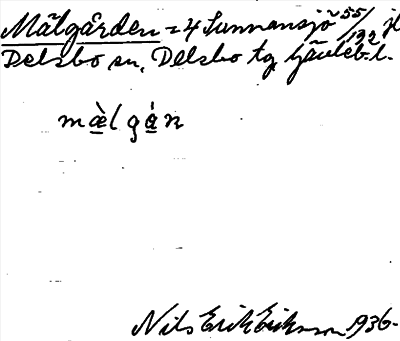 Mälgården = 4 Sunnansjö 55/192 jl
Delsbo sn, Delsbo tg Gävleb. l.
mæ̀l gán
Nils Erik Eriksson 1936.